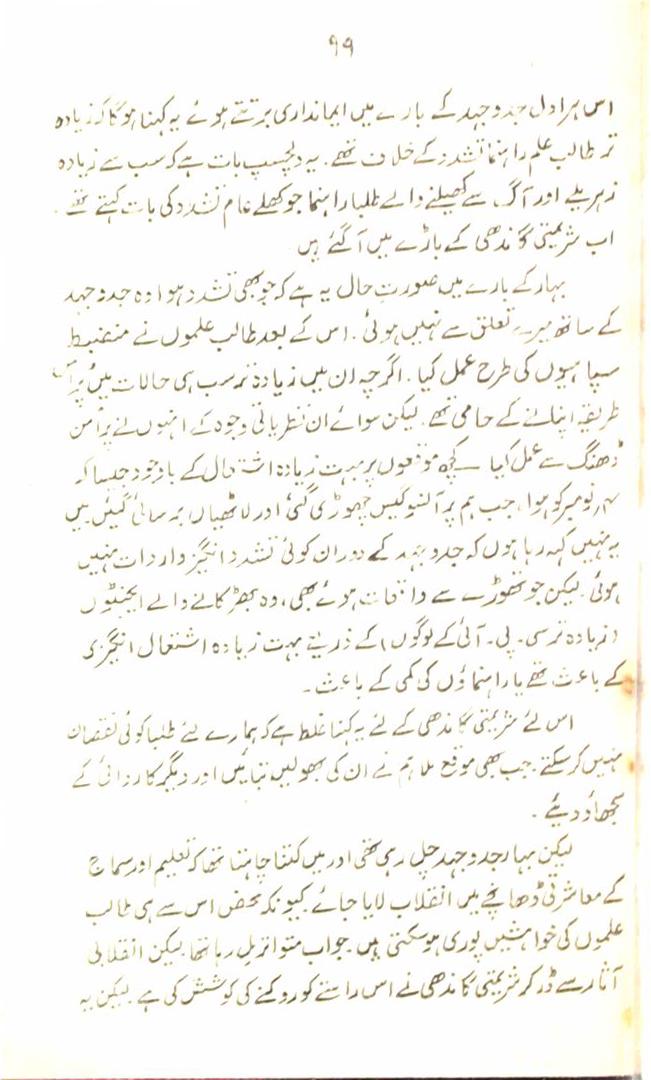 ۹۹
اس ہراول جدوجہد کے بارے میں ایمانداری برتتے ہوئے یہ کہنا ہوگا کہ زیادہ
تر طالب علم راہنما تشدد کے خلاف تھے۔ یہ دلچسپ بات ہے کہ سب سے زیادہ
زہریلے اور آگ سے کھیلنے والے طلبا راہنما جو کھلے عام تشدد کی بات کہتے تھے۔
اب شریمتی گاندھی کے باڑے میں آ گئے ہیں
بہار کے بارے میں صورت حال یہ ہے کہ جو بھی تشدد ہوا وہ جدوجہد
کے ساتھ میرے تعلق سے نہیں ہوئی۔ اس کے بعد طالب علموں نے منضبط
سپاہیوں کی طرح عمل کیا۔ اگرچہ ان میں زیادہ تر سب ہی حالات میں پرامن
طریقہ اپنانے کے حامی تھے لیکن سوائے ان نظریاتی وجوہ کے انہوں نے پرامن
ڈھنگ سے عمل کیا۔ کچھ موقعوں پر بہت زیادہ اشتعال کے باوجود جیسا کہ
۴ نومبر کو ہوا، جب ہم پر آنسو گیس چھوڑی گئی اور لاٹھیاں برسائی گئیں میں
یہ نہیں کہہ رہا ہوں کہ جدوجہد کے دوران کوئی تشدد انگیز واردات نہیں
ہوئی۔ لیکن جو تھوڑے سے واقعات ہوئے بھی، وہ بھڑکانے والے ایجنٹوں
(زیادہ تر سی۔ پی۔ آئی کے لوگوں) کے ذریعے بہت زیادہ اشتعال انگیزی
کے باعث تھے یا راہنماؤں کی کمی کے باعث۔
اس لئے شریمتی گاندھی کے لئے یہ کہنا غلط ہے کہ ہمارے لئے طلبا کوئی نقصان
نہیں کر سکتے۔ جب بھی موقع ملا ہم نے ان کی بھولیں بتائیں اور دیگر کاروائی کے
سجھاؤ دیئے۔
لیکن بہار جدوجہد چل رہی تھی اور میں کتنا چاہتا تھا کہ تعلیم اور سماج
کے معاشرتی ڈھانچے میں انقلاب لایا جائے کیونکہ محض اس سے ہی طالب
علموں کی خواہشیں پوری ہو سکتی ہیں جواب متواتر مل رہا تھا لیکن انقلابی
آثار سے ڈر کر شریمتی گاندھی نے اس راستے کو روکنے کی کوشش کی ہے لیکن یہ